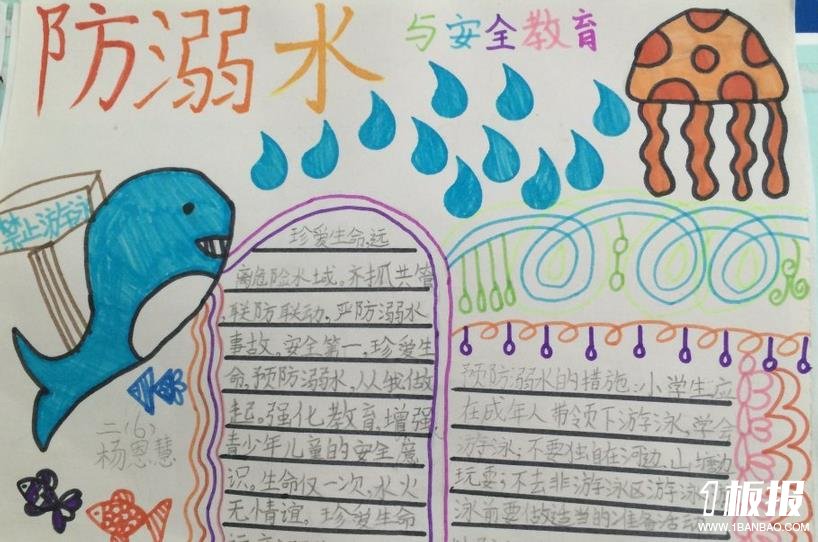 防溺水
与安全教育
禁止游泳
珍爱生命,远
离危险水域。齐抓共管
,联防联动,严防溺水
事故。安全第一,珍爱生
命,预防溺水,从我做
起。强化教育,增强
青少年儿童的安全意
识。生命仅一次,水火
无情谊。珍爱生命
预防溺水的措施:小学生应
在成年人带领下游泳,学会
游泳;不要独自在河边、山塘边
玩耍;不去非游泳区游泳
泳前要做适当的准备活动
二(6)
杨恩慧
1板报
WWW.1BANBAO.COM